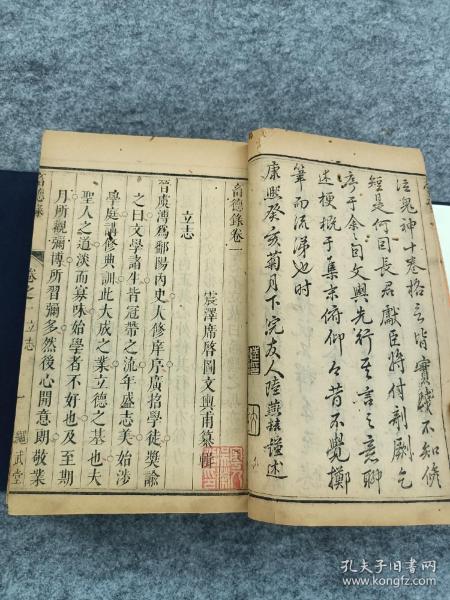 泣鬼神十卷格言皆實踐不知脩
短是何因長君獻臣將付剞劂乞
序于余自文輿先行至言之意聊
述梗概于集末俯仰今昔不覺擲
筆而流涕也時
康熙癸亥菊月下浣友人陸
謹述
畜德錄卷一
震澤席啓圖文輿甫纂輯
立志
晉虞溥爲鄱陽內史大修庠序廣招學徒獎諭
之曰文學諸生皆冠帶之流年盛志美始涉
學庭講修典訓此大成之業立德之基也夫
聖人之道淡而寡味始學者不好也及至期
月所觀彌博所習彌多然後心開意朗敬業
畜德錄
卷之一
立志
一
繩武堂
孔夫子旧书网
www.kongfz.com